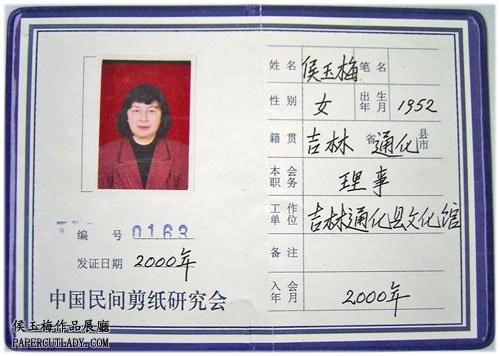 编 号 0163
发证日期 2000年
中国民间剪纸研究会
姓名 侯玉梅 笔名
性别 女 出生年月 1952
籍贯 吉林 省 通化 县市
本会职务 理事
工作单位 吉林通化县文化馆
备注
入会年月 2000年
侯玉梅作品展廳
PAPERCUTLADY.COM